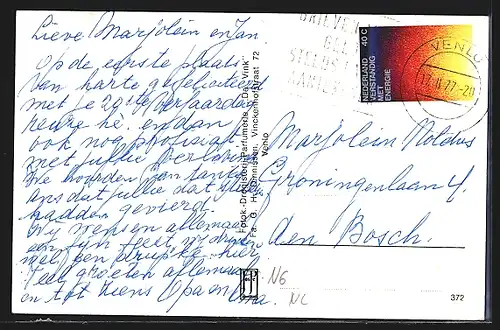 Lieve Marjolein en Jan
Op de eerste plaats
van harte gefeliciteerd
met je 21ste verjaardag
hoor he. en dan
ook nog proficiat
met jullie verloving
We hoorden van tante
Ans dat jullie dat
hadden gevierd.
Wij wensen allemaal
een fijn feest
met een drupke hier
Veel groeten allemaal
en tot ziens Opa en Oma.
Fotok.-Drogisterij-Parfumerie „Da Vink"
Fa. G. H. Teunissen, Vinckenhofstraat 72
Venlo
BRIEVEN
STEEDS
NEDERLAND 40 C
VERSTANDIG
MET
ENERGIE
VENLO
Marjolein Noldus
Groningenlaan 4.
den Bosch.
N6
NL
372